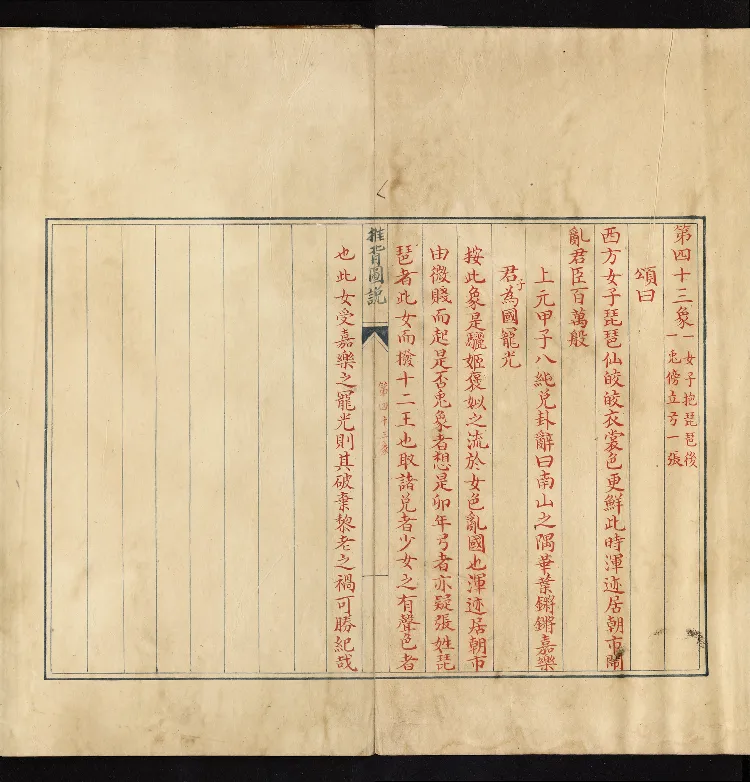 第四十三象
一女子抱琵琶後
一兎傍立弓一張
頌曰
西方女子琵琶仙皎皎衣裳色更鮮此時渾迹居朝市鬧
亂君臣百萬般
上元甲子八純兑卦辭曰南山之隅華葉鏘鏘嘉樂
君子為國寵光
按此象是驪姬褒姒之流於女色亂國也渾迹居朝市
由微賤而起是否兎象者想是卯年弓者亦疑張姓琵
琶者此女而撥十二王也取諸兑者少女之有聲色者
推背圖説
第四十三象
也此女受嘉樂之寵光則其破棄黎老之禍可勝紀哉